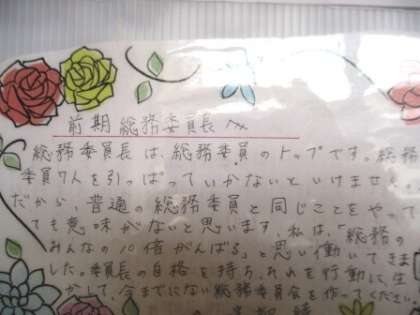 前期総務委員長へ
総務委員長は、総務委員のトップです。総務
委員7人を引っぱっていかないといけません。
だから、普通の総務委員と同じことをやって
ても意味がないと思います。私は、「総務の
みんなの10倍がんばる」と思い働いてきま
した。委員長の自格を持ち、それを行動に生
かして、今までにない総務委員会を作ってください。